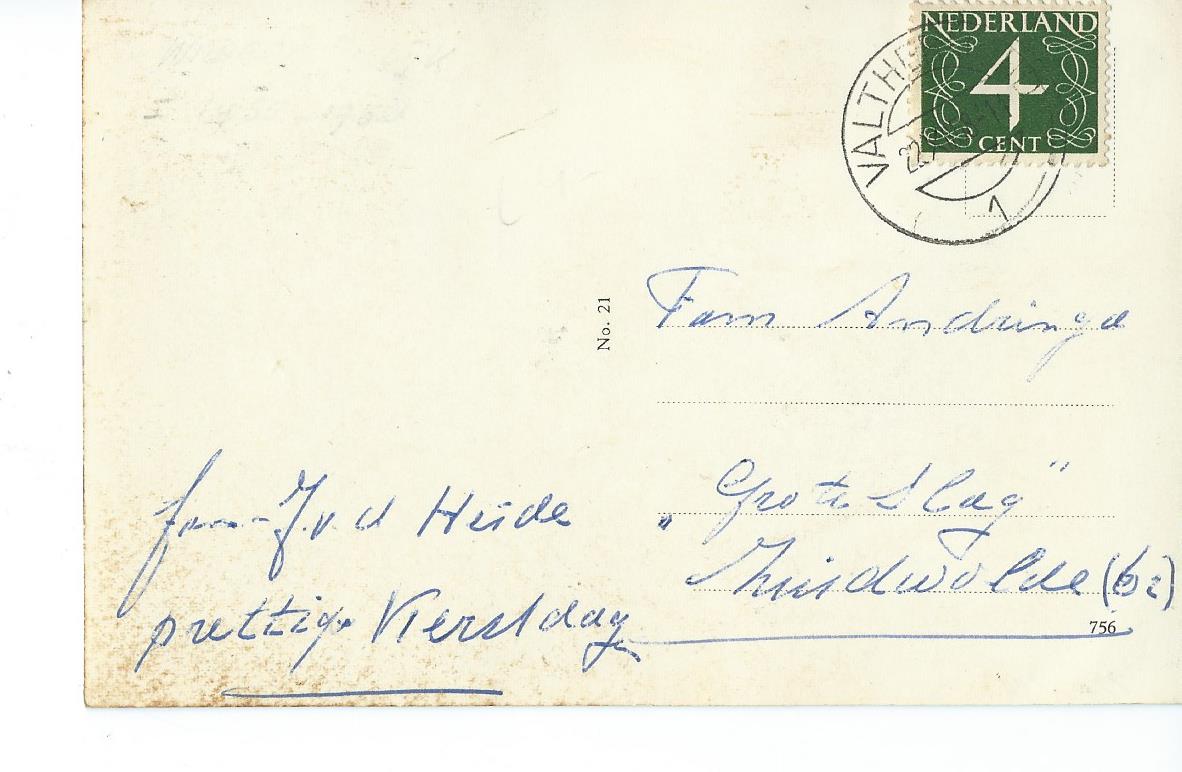 NEDERLAND
4
CENT
VALTHE
22
1
No. 21
Fam Andringa
„Grote Slag"
Zuidwolde (Dr)
756
fam J. v d Heide
prettige Kerstdag